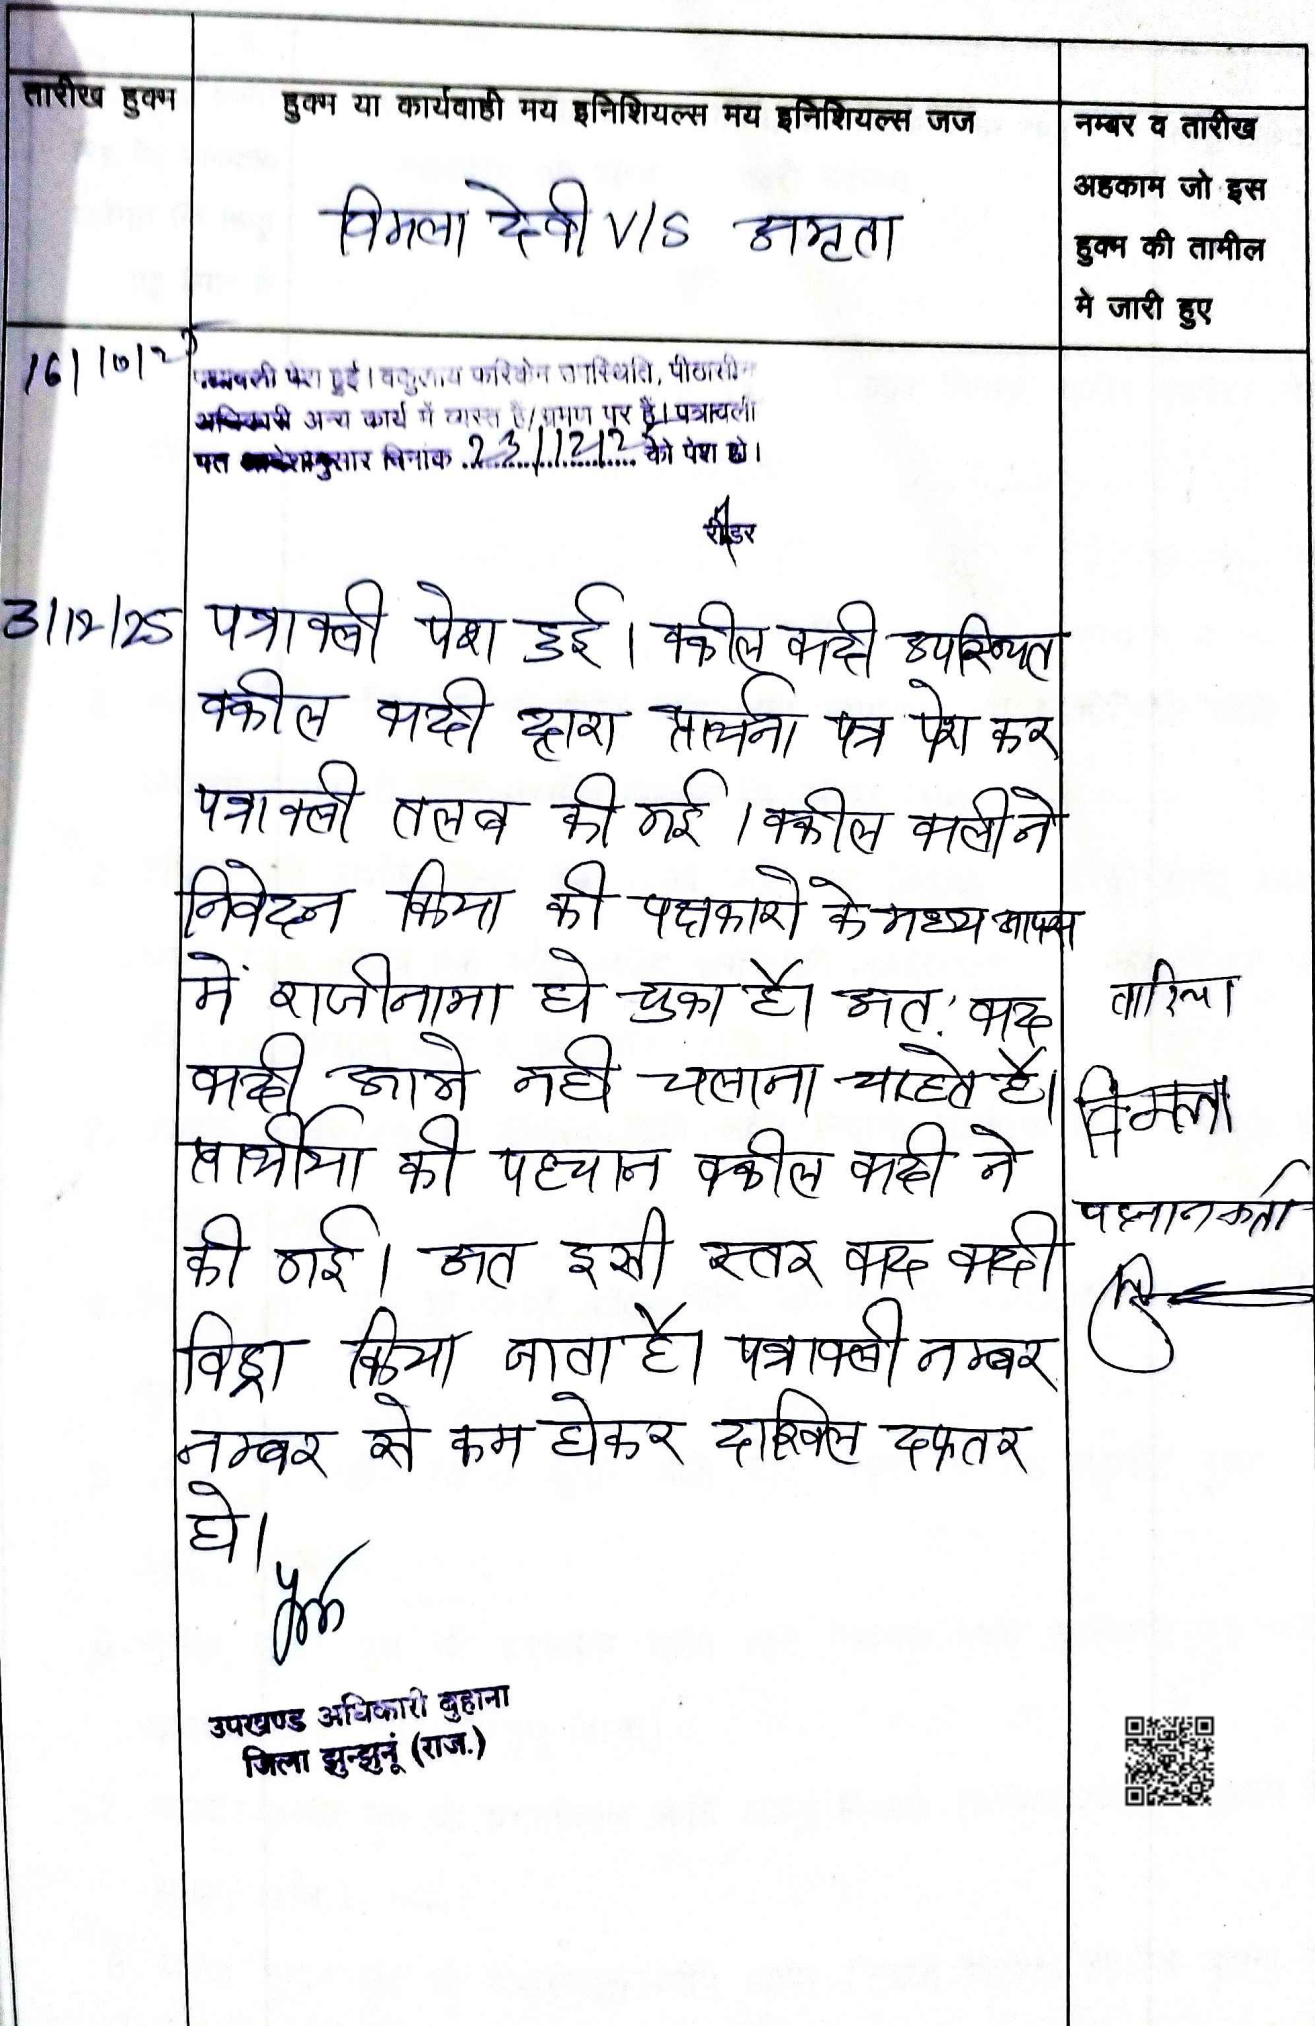 तारीख हुक्म
हुक्म या कार्यवाही मय इनिशियल्स मय इनिशियल्स जज
नम्बर व तारीख
अहकाम जो इस
हुक्म की तामील
मे जारी हुए
विमला देवी V/S अमृता
16/10/25
पत्रावली पेश हुई। वकुलाय फरिकेन उपस्थिति, पीठासीन
अधिकारी अन्य कार्य में व्यस्त है/भ्रमण पर है। पत्रावली
दिनांक 23/12/25 को पेश हो।
रीडर
3/12/25
पत्रावली पेश हुई। वकील वादी उपस्थित
वकील वादी द्वारा प्रार्थना पत्र पेश कर
पत्रावली तलब की गई। वकील वादी ने
निवेदन किया की पक्षकारो के मध्य आपस
में राजीनामा हो चुका है। अत: वाद
वादी आगे नही चलाना चाहते है।
प्रार्थीया की पहचान वकील वादी ने
की गई। अत इसी स्तर वाद वादी
विड्रा किया जाता है। पत्रावली नम्बर
नम्बर से कम होकर दाखिल दफतर
हो।
विमला
पहचानकर्ता
उपखण्ड अधिकारी बुहाना
जिला झुन्झुनूं (राज.)